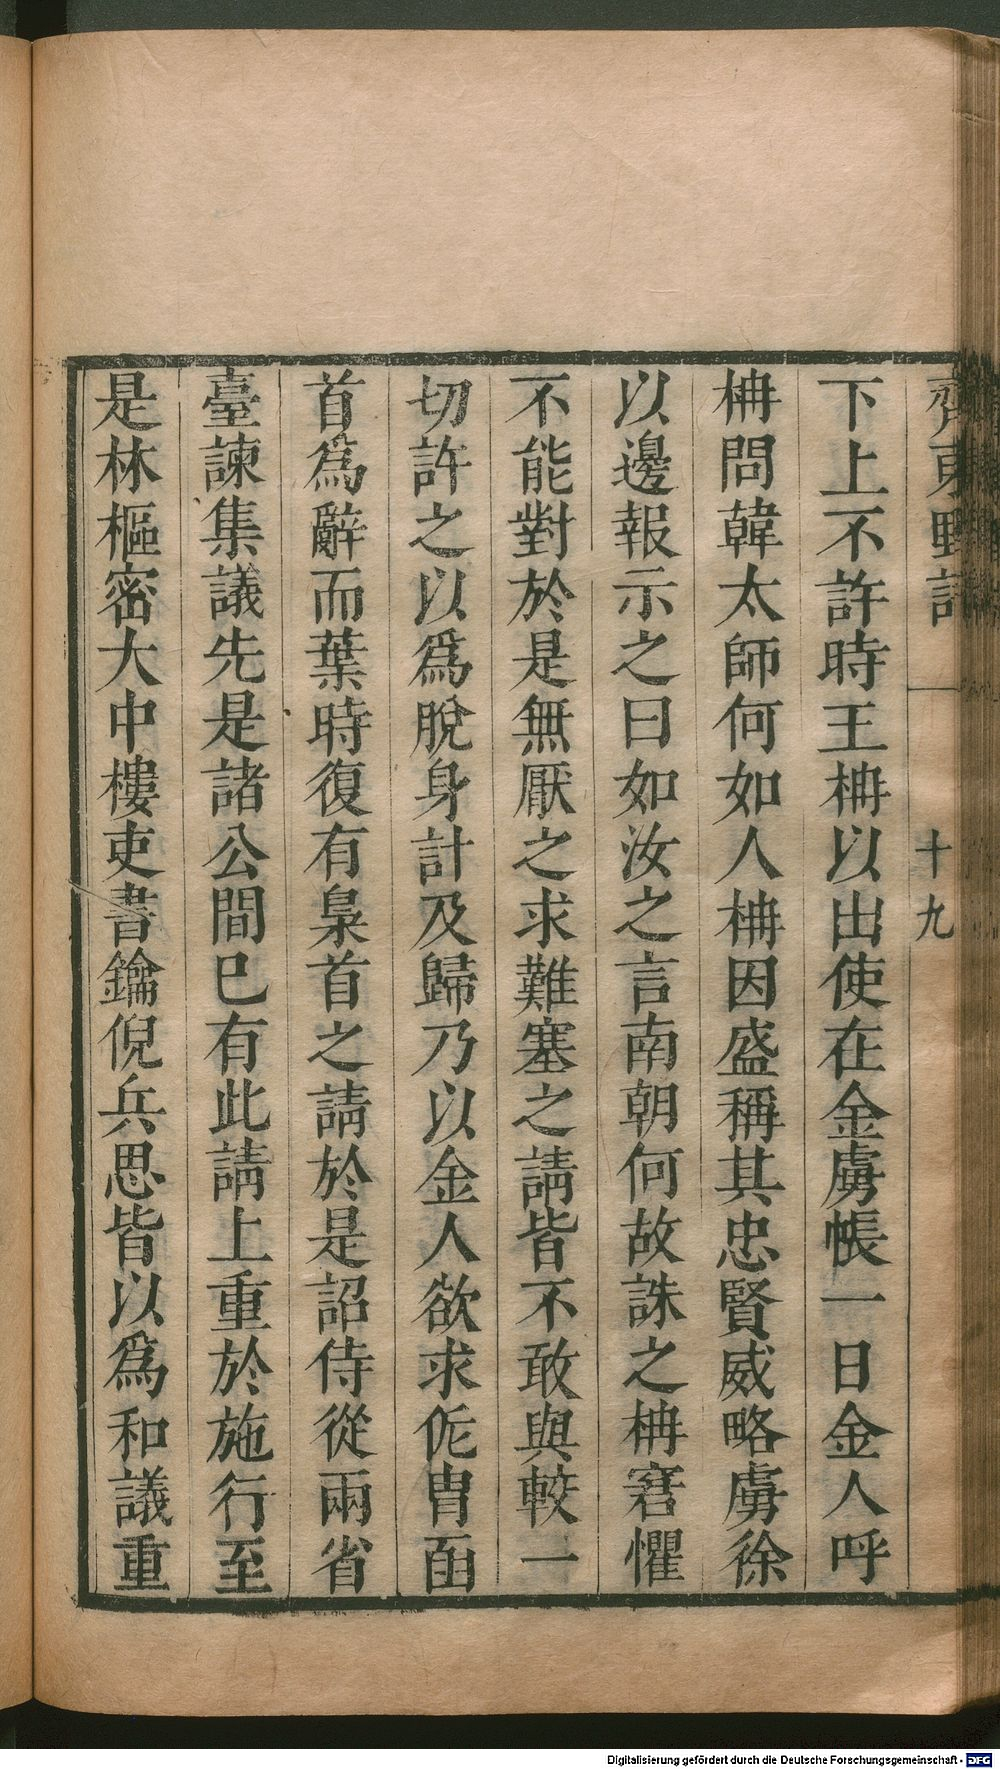 齊東野語 十九
下上不許時王柟以出使在金虜帳一日金人呼
柟問韓太師何如人柟因盛稱其忠賢威略虜徐
以邊報示之曰如汝之言南朝何故誅之柟窘懼
不能對於是無厭之求難塞之請皆不敢與較一
切許之以爲脫身計及歸乃以金人欲求侂胄函
首爲辭而葉時復有梟首之請於是詔侍從兩省
臺諫集議先是諸公間巳有此請上重於施行至
是林樞密大中樓吏書鑰倪兵思皆以爲和議重
Digitalisierung gefördert durch die Deutsche Forschungsgemeinschaft - DFG